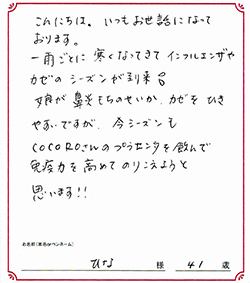 こんにちは。いつもお世話になって
おります。
一雨ごとに寒くなってきてインフルエンザや
カゼのシーズンが到来
娘が鼻炎もちのせいか、カゼをひき
やすいですが、今シーズンも
COCOROさんのプラセンタを飲んで
免疫力を高めてのりこえようと
思います!!
お名前(実名orペンネーム)
ひな 様 41 歳